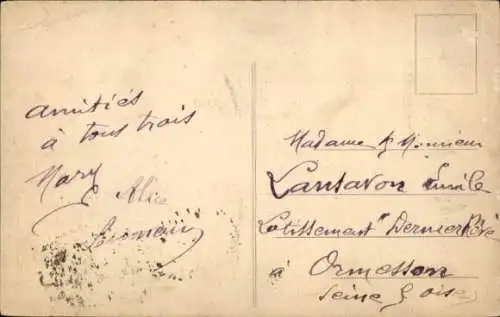 amitiés
à tous trois
Mary
Alice
Madame & Monsieur
Lansavon Emile
Lotissement "Dernier Rêve
à Ormesson
Seine & oise